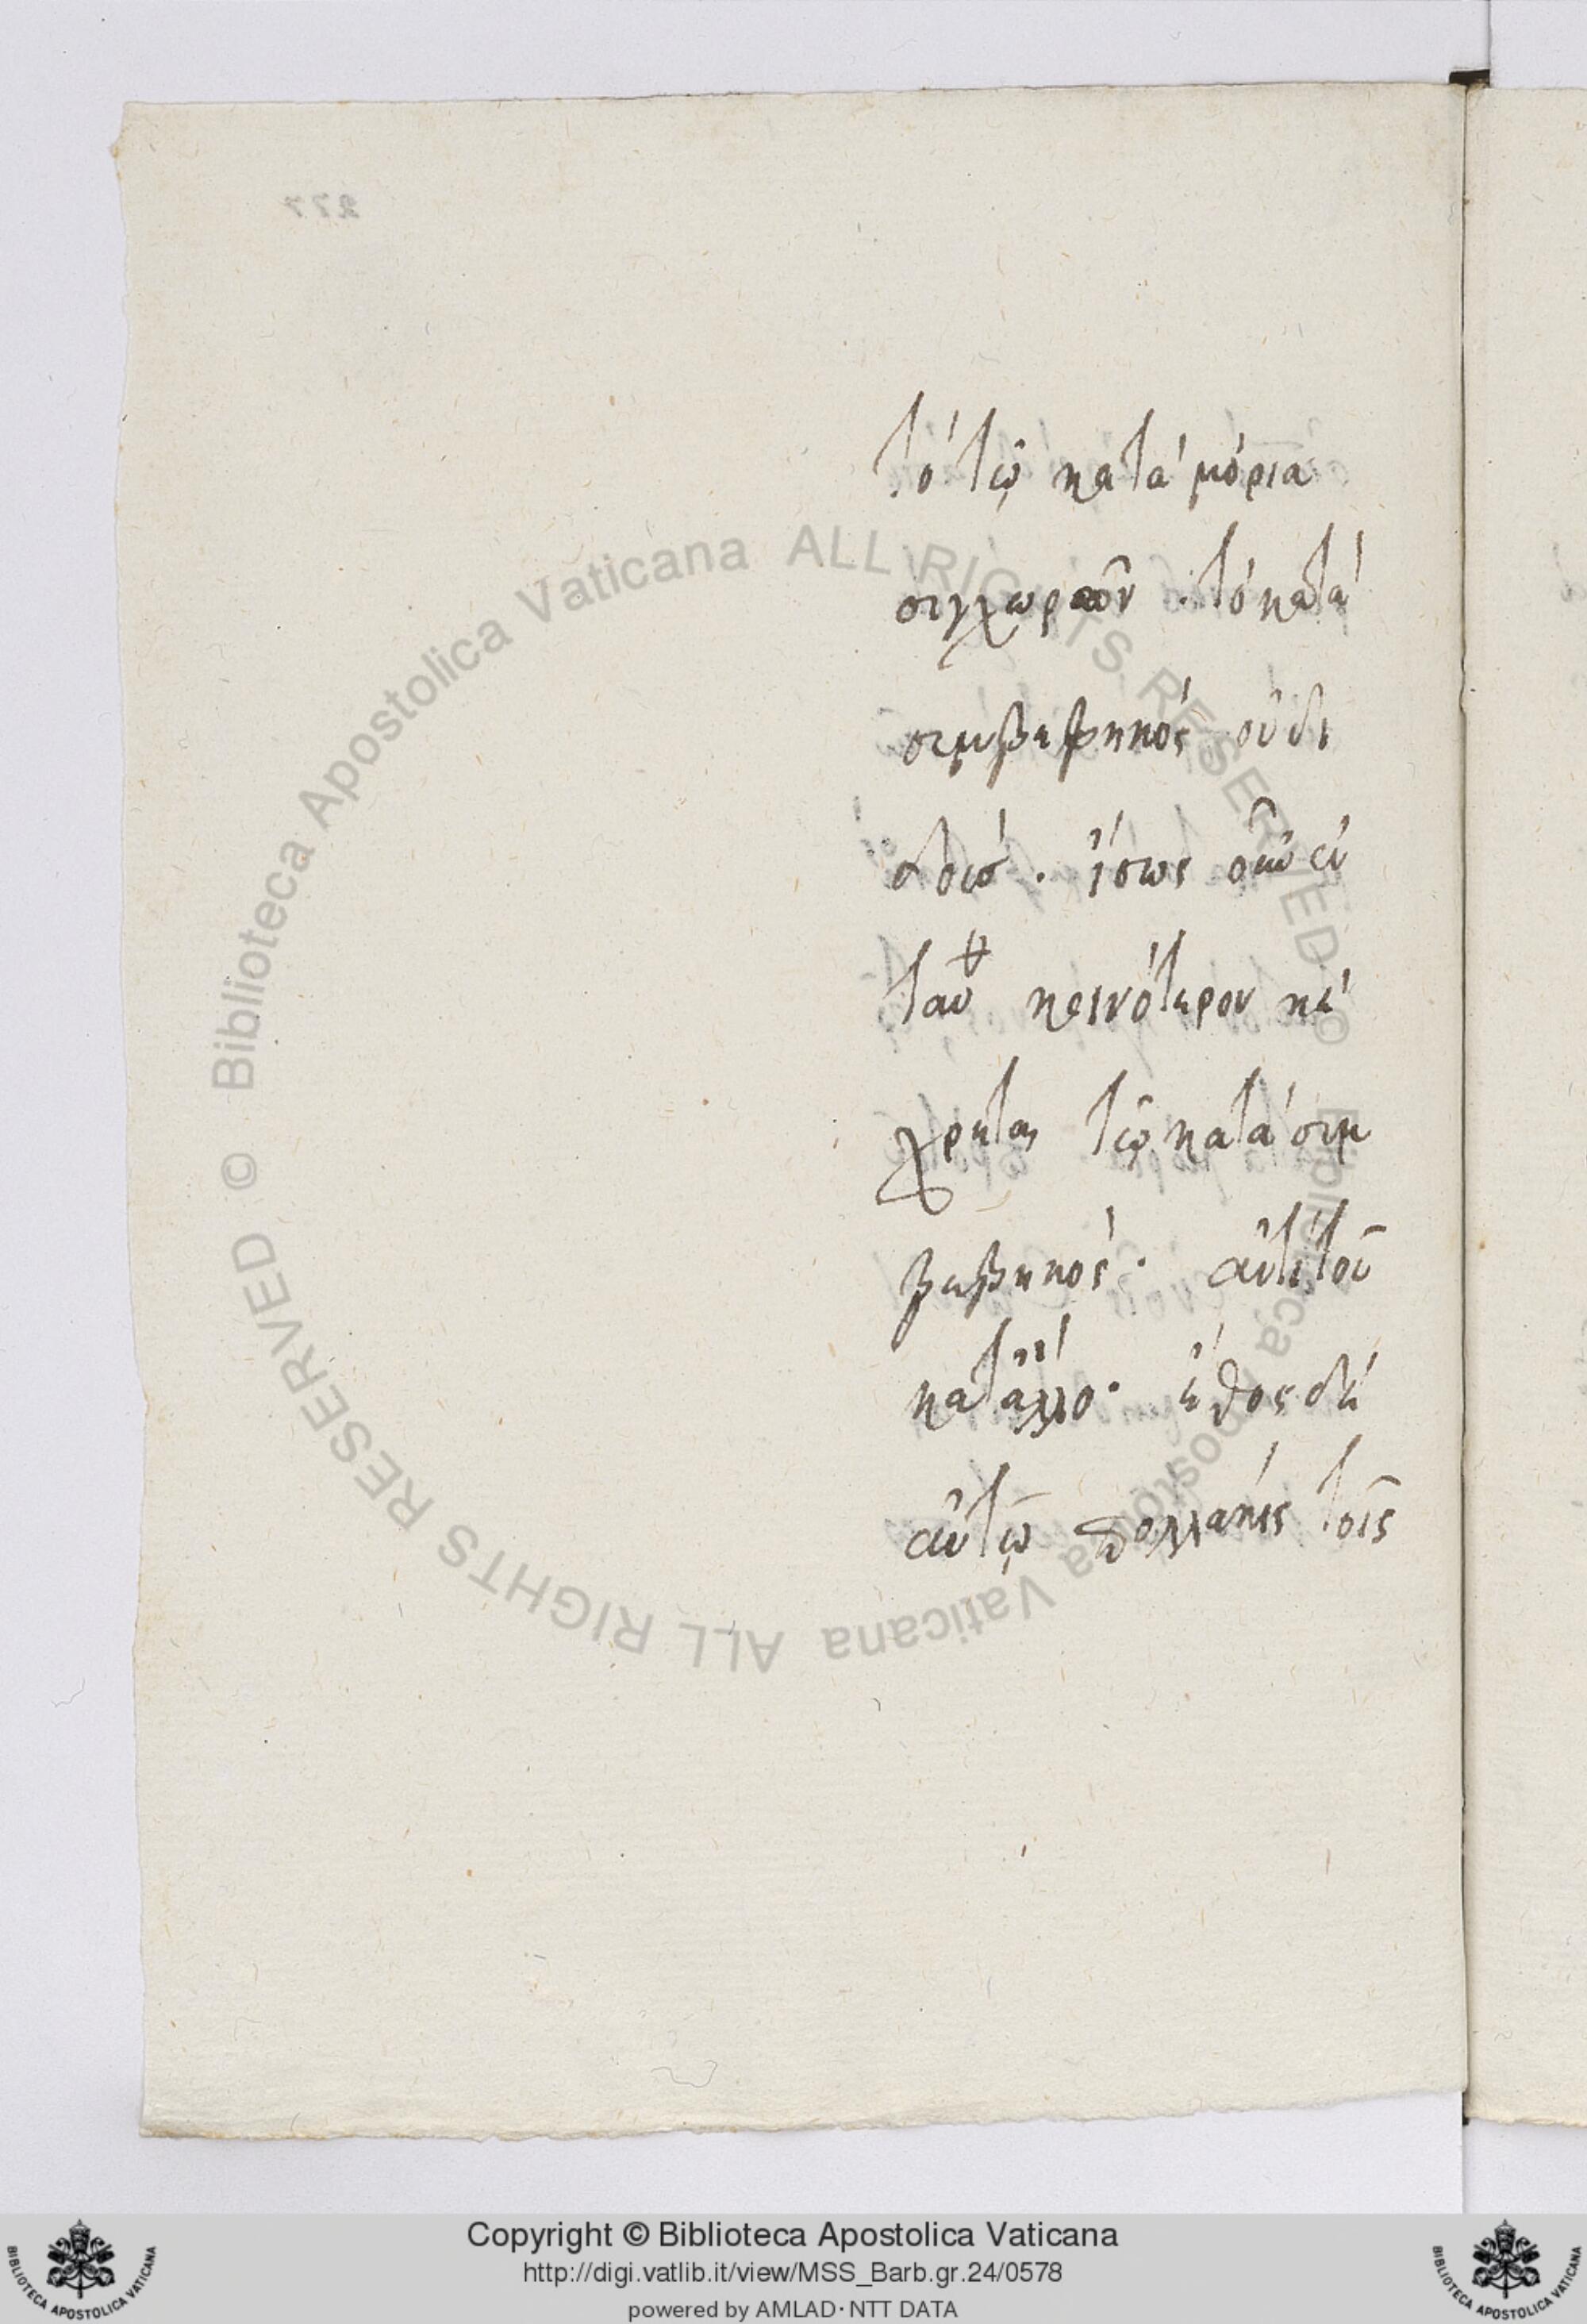 277
τὸ τῷ κατὰ μόρια
συγχωροῦν · τὸ κατὰ
συμβεβηκὸς οὐ δι
δωσ · ἴσως οὖν ἐν
ταῦθ κοινότερον κέ
χρηται τῷ κατὰ συμ
βεβηκός · ἀντὶ τοῦ
κατ' ἄλλο · ἔθος δὲ
αὐτῷ πολλάκις τοῖς
Biblioteca Apostolica Vaticana ALL RIGHTS RESERVED ©
Biblioteca Apostolica Vaticana ALL RIGHTS RESERVED ©
Copyright © Biblioteca Apostolica Vaticana
http://digi.vatlib.it/view/MSS_Barb.gr.24/0578
powered by AMLAD·NTT DATA
BIBLIOTECA APOSTOLICA VATICANA
BIBLIOTECA APOSTOLICA VATICANA